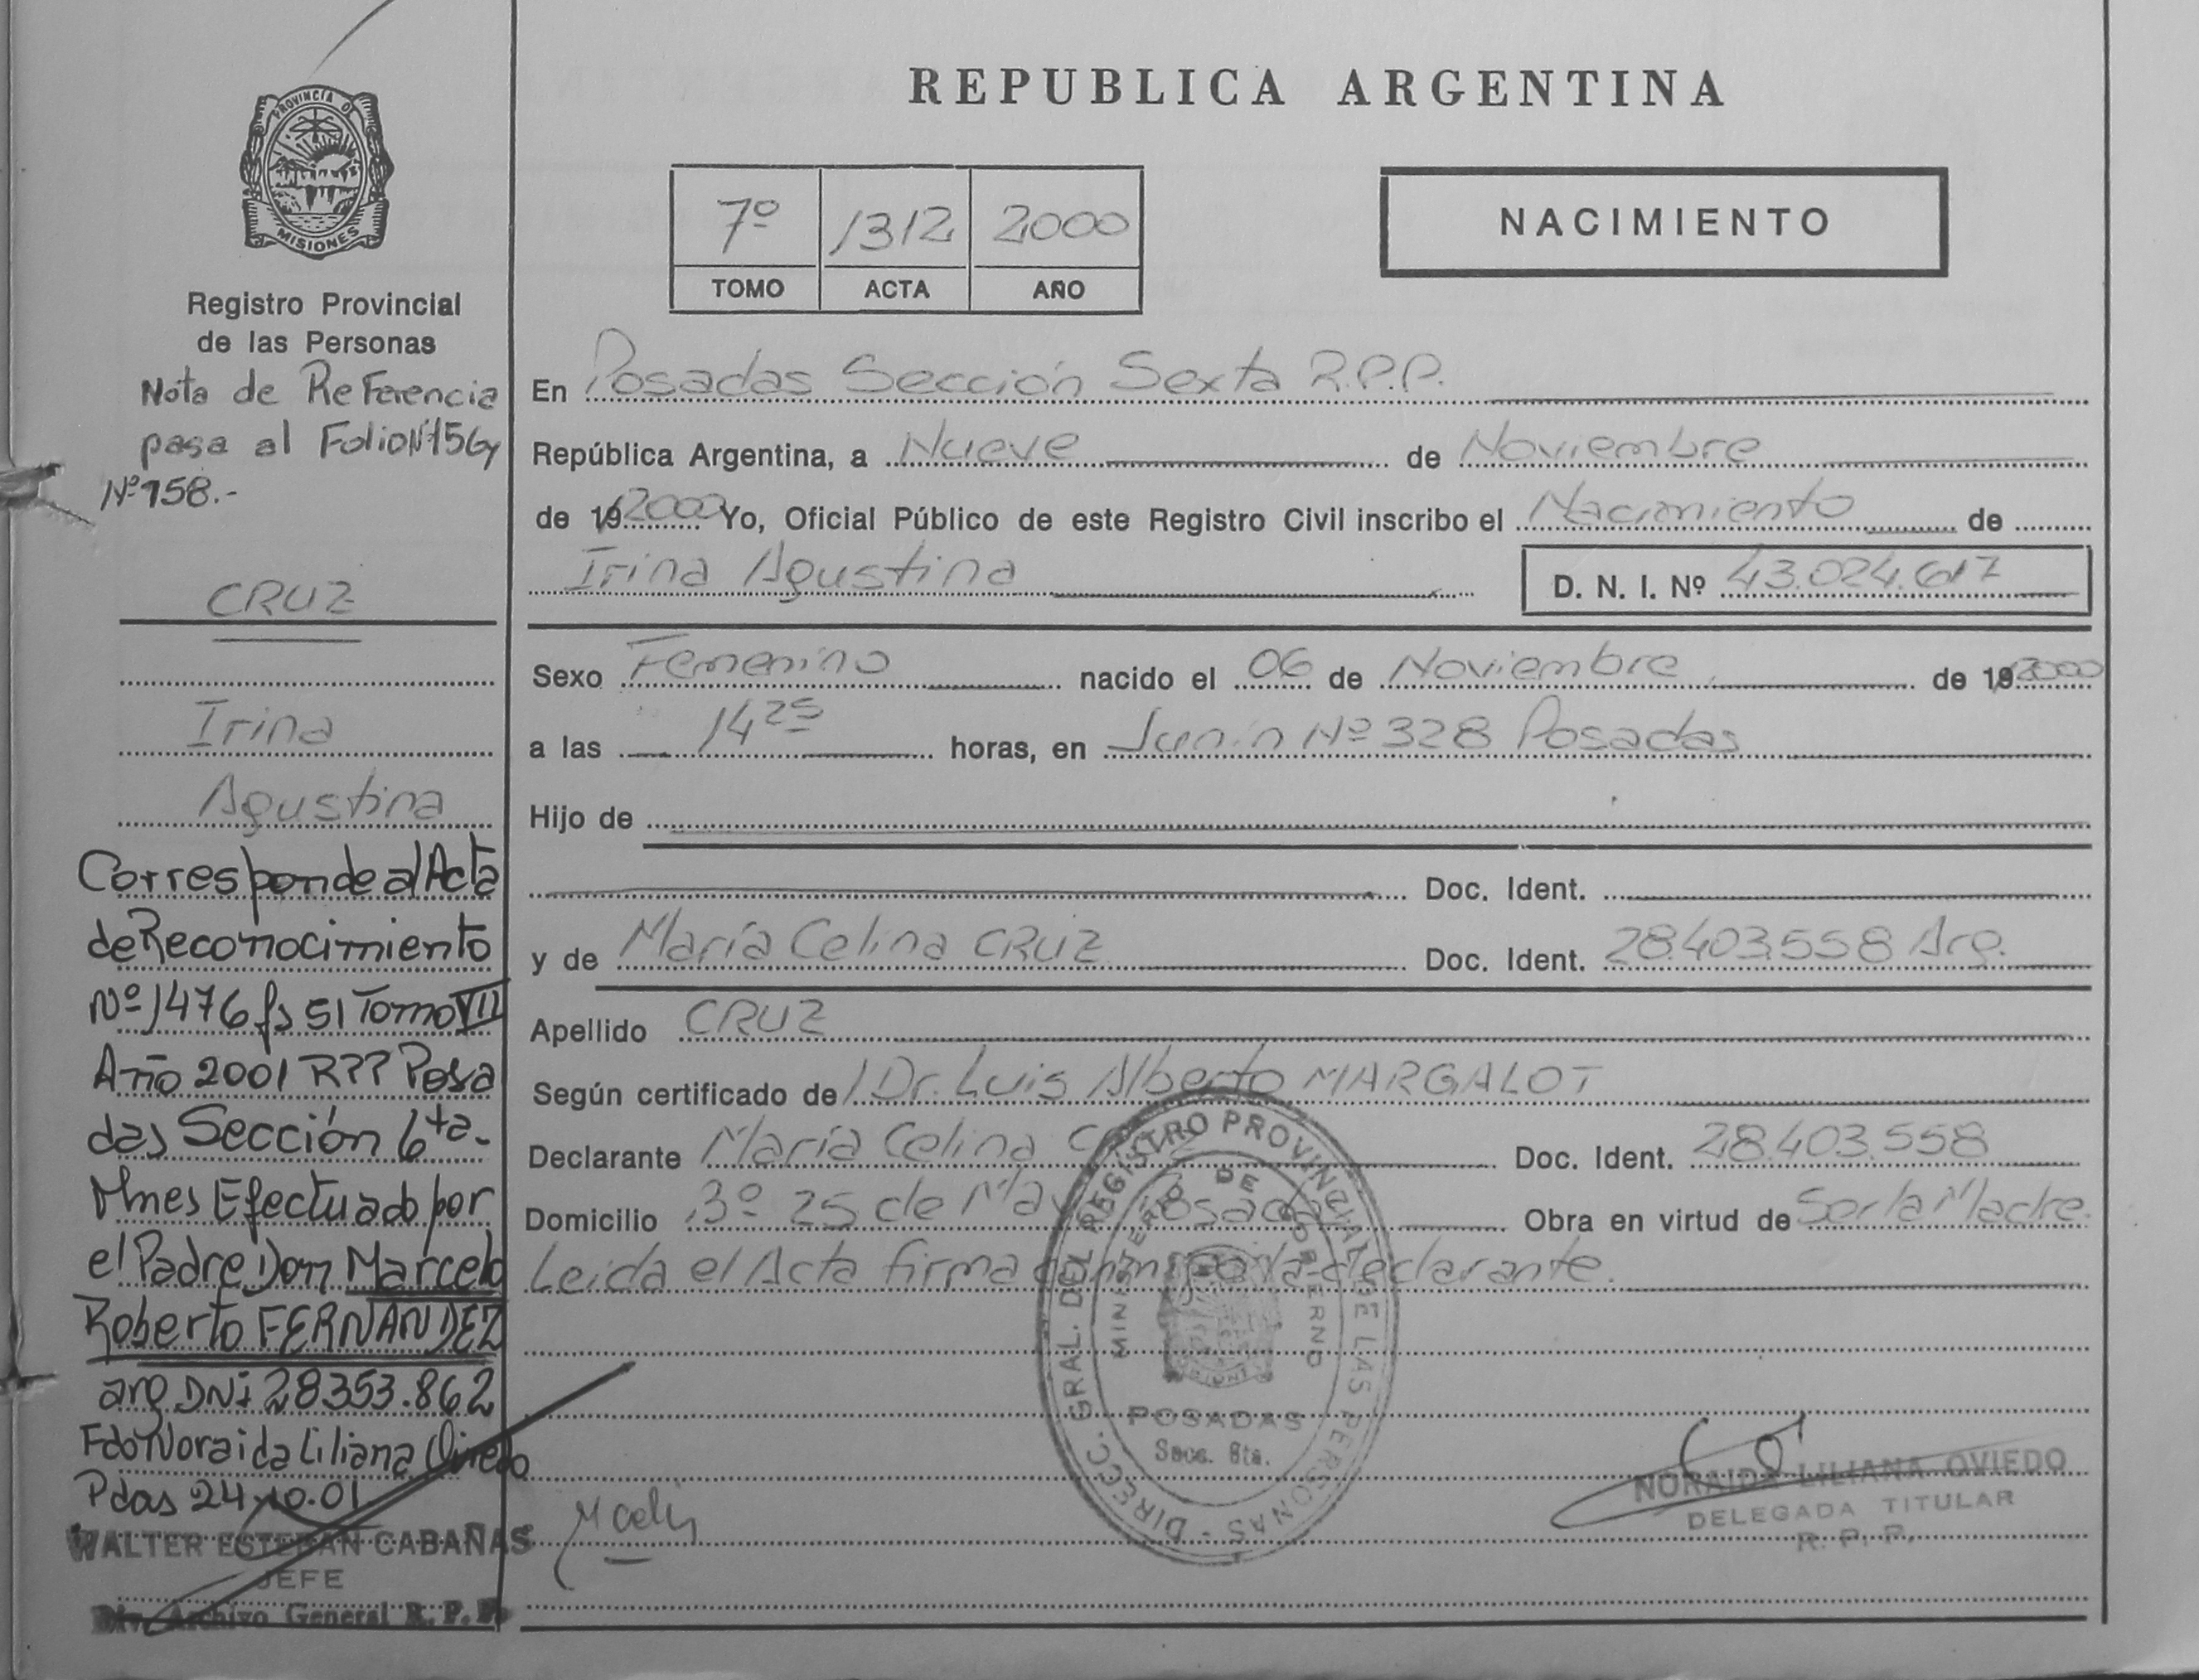 PROVINCIA D
MISIONES
Registro Provincial
de las Personas
Nota de Referencia
pasa al Folio Nº156y
Nº158.-
CRUZ
Irina
Agustina
Corresponde al Acta
de Reconocimiento
Nº1476 fs 51 Tomo VII
Año 2001 RPP Posa
das Sección 6ta-
Mnes Efectuado por
el Padre Don Marcelo
Roberto FERNANDEZ
arg DNi 28353.862
Fdo Noraida Liliana Oviedo
Pdas 24.10.01
WALTER ESTEBAN CABAÑAS
JEFE
Div. Archivo General R. P. P.
REPUBLICA ARGENTINA
7º 1312 2000
TOMO ACTA AÑO
NACIMIENTO
En Posadas Sección Sexta R.P.P.
República Argentina, a Nueve de Noviembre
de 19 2000 Yo, Oficial Público de este Registro Civil inscribo el Nacimiento de
Irina Agustina D. N. I. Nº 43.024.617
Sexo Femenino nacido el 06 de Noviembre de 19 2000
a las 14 25 horas, en Junín Nº 328 Posadas
Hijo de
Doc. Ident.
y de María Celina CRUZ Doc. Ident. 28.403.558 Arg.
Apellido CRUZ
Según certificado del Dr. Luis Alberto MARGALOT
Declarante María Celina CRUZ Doc. Ident. 28.403.558
Domicilio Bº 25 de Mayo Posadas Obra en virtud de Ser la Madre
Leida el Acta firma conmigo la declarante.
DIRECC. GRAL. DEL REGISTRO PROVINCIAL DE LAS PERSONAS -
MINISTERIO DE GOBIERNO
POSADAS
Secc. 6ta.
NORAIDA LILIANA OVIEDO
DELEGADA TITULAR
R. P. P.